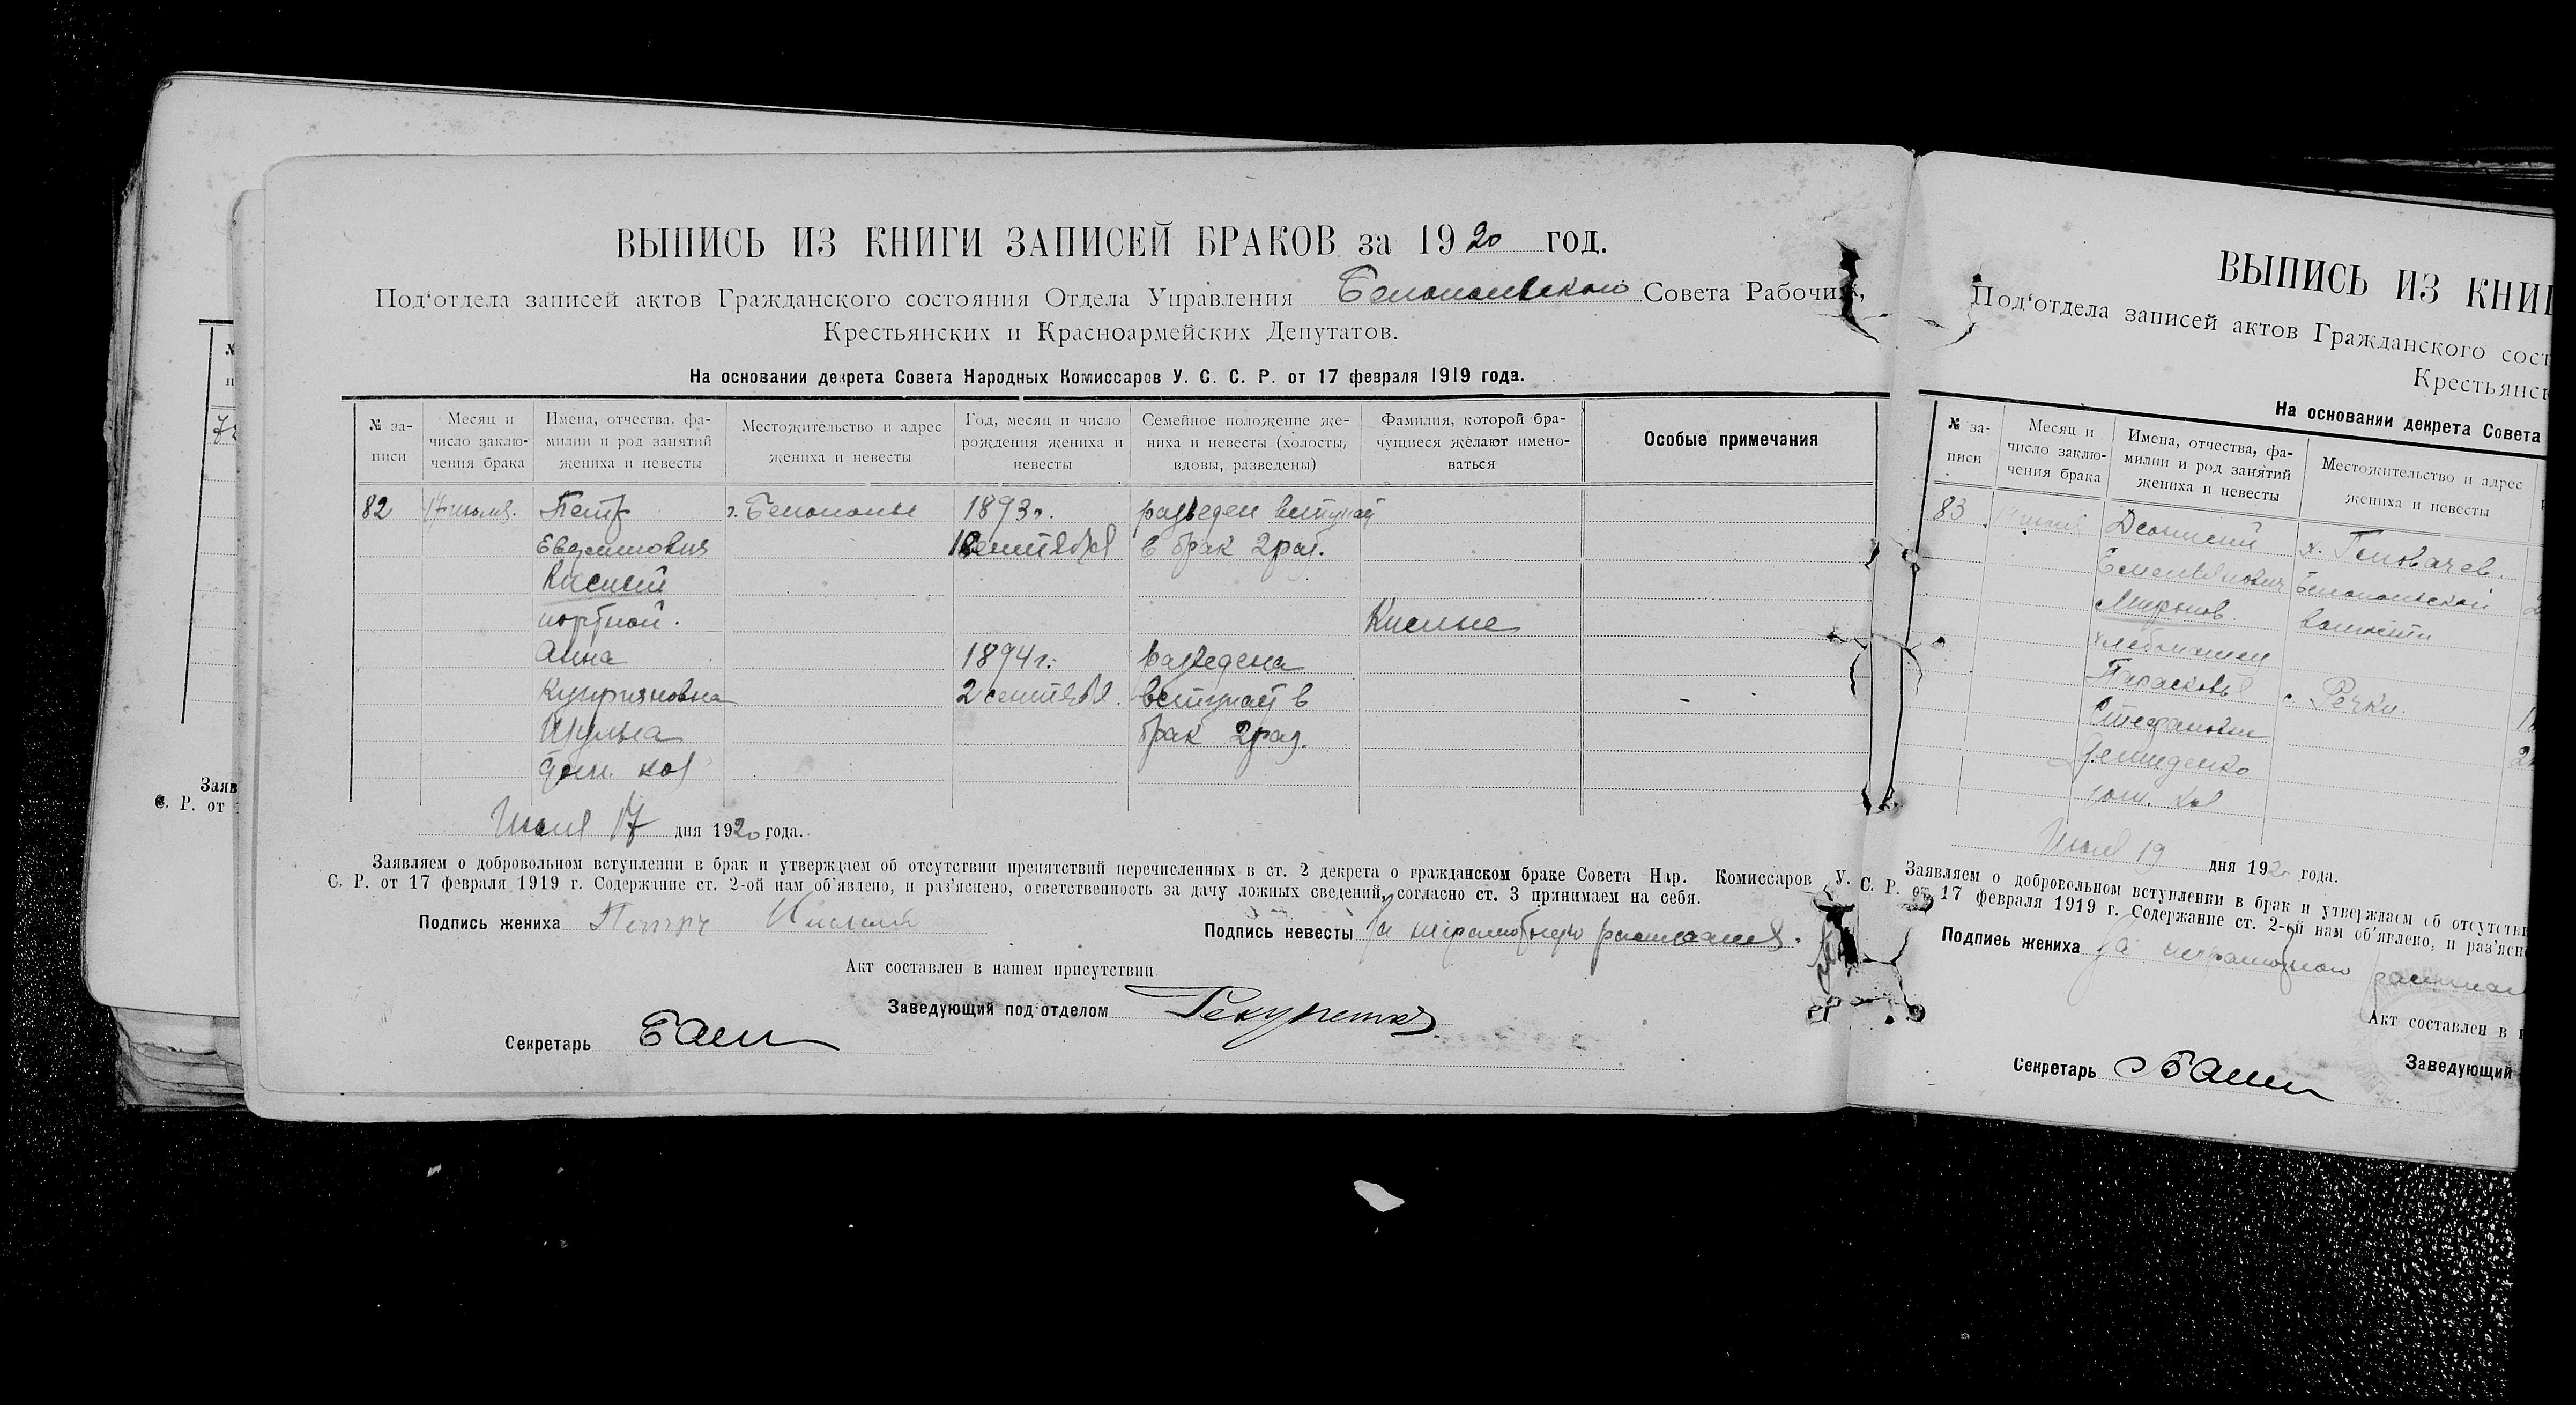 ВЫПИСЬ ИЗ КНИГИ ЗАПИСЕЙ БРАКОВ за 1920 год.
Под‘отдела записей актов Гражданского состояния Отдела Управления Белопольского Совета Рабочих,
Крестьянских и Красноармейских Депутатов.
На основании декрета Совета Народных Комиссаров У. С. С. Р. от 17 февраля 1919 года.
№ за-
писи
Месяц и
число заклю-
чения брака
Имена, отчества, фа-
милии и род занятий
жениха и невесты
Местожительство и адрес
жениха и невесты
Год, месяц и число
рождения жениха и
невесты
Семейное положение же-
ниха и невесты (холосты,
вдовы, разведены)
Фамилия, которой бра-
чущиеся желают имено-
ваться
Особые примечания
82 17 июля. Петр г. Белополье 1893 г. разведен вступает
Евдокимович 1 сентября в брак 2 раз.
Кислый
портной. Кислые
Анна 1894 г. разведена
Куприяновна 2 сентября. вступает в
Шульга брак 2 раз.
дом. хоз
Июля 17 дня 1920 года.
Заявляем о добровольном вступлении в брак и утверждаем об отсутствии препятствий перечисленных в ст. 2 декрета о гражданском браке Совета Нар. Комиссаров У.
С. Р. от 17 февраля 1919 г. Содержание ст. 2-ой нам об‘явлено, и раз‘яснено, ответственность за дачу ложных сведений, согласно ст. 3 принимаем на себя.
Подпись жениха Петръ Кислый Подпись невесты За неграмотную расписался.
Акт составлен в нашем присутствии
Заведующий под‘отделом
Секретарь
ВЫПИСЬ ИЗ КНИГ
Под‘отдела записей актов Гражданского сост
Крестьянск
На основании декрета Совета
№ за-
писи
Месяц и
число заклю-
чения брака
Имена, отчества, фа-
милии и род занятий
жениха и невесты
Местожительство и адрес
жениха и невесты
83 июля Деонисий х. Головачев.
Емельянович Белопольской
Миронов. волости
хлебопашец
Парасковья с. Речки.
Стефановна
Демиденко
дом. хоз
Июля 19 дня 192 года.
Заявляем о добровольном вступлении в брак и утверждаем об отсутстви
С. Р. от 17 февраля 1919 г. Содержание ст. 2-ой нам об‘явлено, и раз‘ясн
Подпись жениха За неграмотного
Акт составлен в н
Заведующий
Секретарь
Заяв
С. Р. от